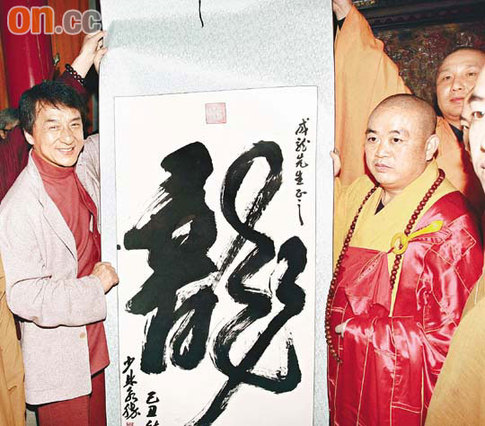 on.cc
成龍先生正之
龍
己丑
少林永信